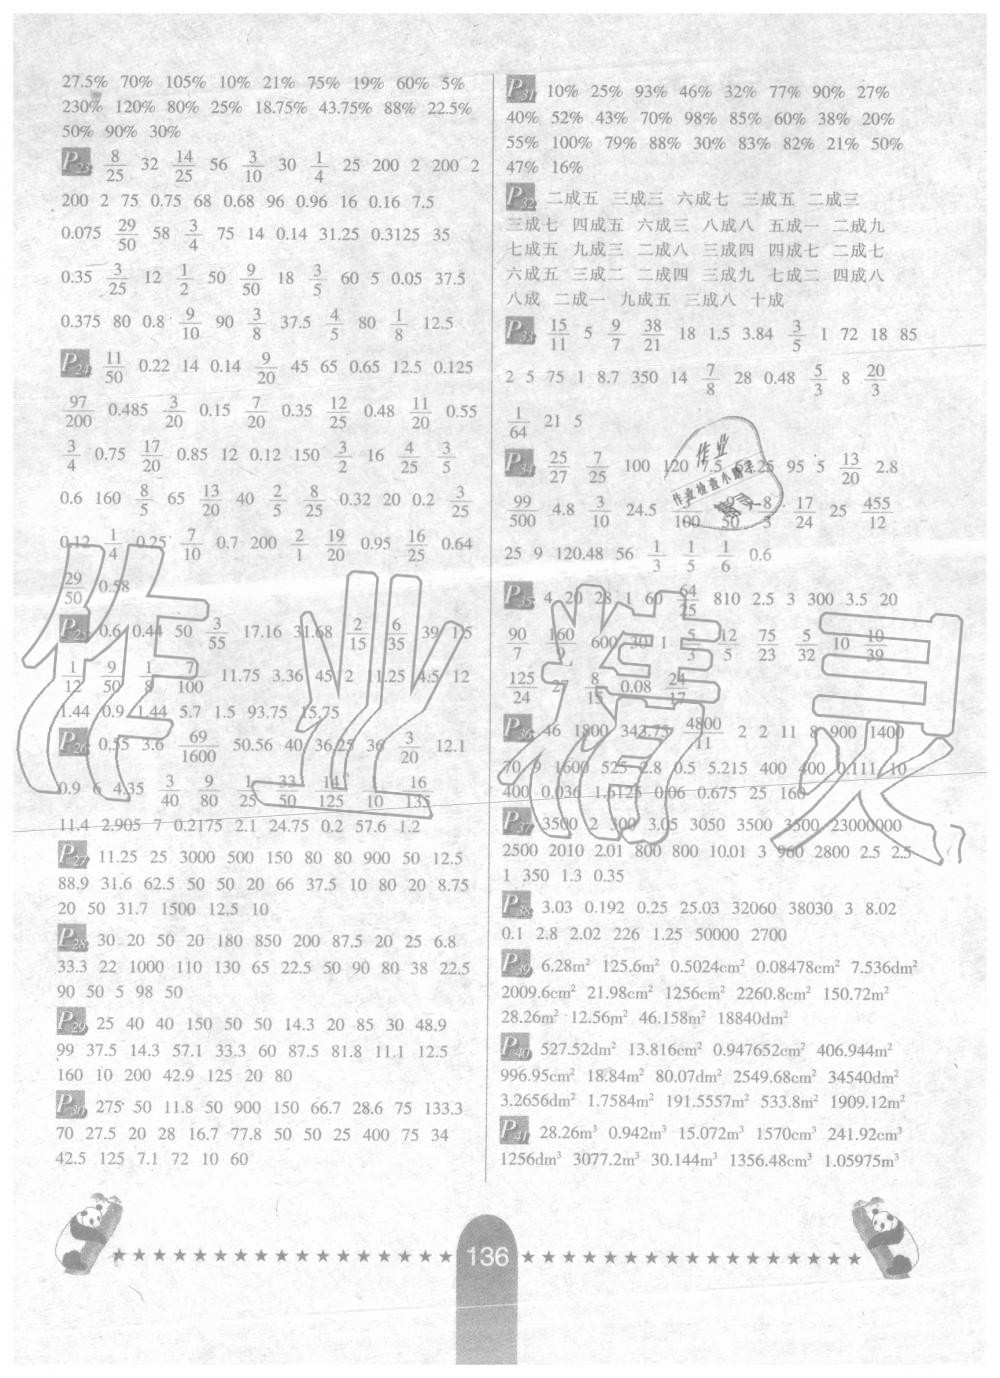 27.5% 70% 105% 10% 21% 75% 19% 60% 5%
230% 120% 80% 25% 18.75% 43.75% 88% 22.5%
50% 90% 30%
P23 8/25 32 14/25 56 3/10 30 1/4 25 200 2 200 2
200 2 75 0.75 68 0.68 96 0.96 16 0.16 7.5
0.075 29/50 58 3/4 75 14 0.14 31.25 0.3125 35
0.35 3/25 12 1/2 50 9/50 18 3/5 60 5 0.05 37.5
0.375 80 0.8 9/10 90 3/8 37.5 4/5 80 1/8 12.5
P24 11/50 0.22 14 0.14 9/20 45 65 0.65 12.5 0.125
97/200 0.485 3/20 0.15 7/20 0.35 12/25 0.48 11/20 0.55
3/4 0.75 17/20 0.85 12 0.12 150 3/2 16 4/25 3/5
0.6 160 8/5 65 13/20 40 2/5 8/25 0.32 20 0.2 3/25
0.12 1/4 0.25 7/10 0.7 200 2/1 19/20 0.95 16/25 0.64
29/50 0.58
P25 0.6 0.44 50 3/55 17.16 31.68 2/15 6/35 39 1.5
1/12 9/50 1/8 7/100 11.75 3.36 45 2 11.25 4.5 12
1.44 0.9 1.44 5.7 1.5 93.75 15.75
P26 0.55 3.6 69/1600 50.56 40 36.25 36 3/20 12.1
0.9 6 4.35 3/40 9/80 1/25 33/50 14/125 10 16/135
11.4 2.905 7 0.2175 2.1 24.75 0.2 57.6 1.2
P27 11.25 25 3000 500 150 80 80 900 50 12.5
88.9 31.6 62.5 50 50 20 66 37.5 10 80 20 8.75
20 50 31.7 1500 12.5 10
P28 30 20 50 20 180 850 200 87.5 20 25 6.8
33.3 22 1000 110 130 65 22.5 50 90 80 38 22.5
90 50 5 98 50
P29 25 40 40 150 50 50 14.3 20 85 30 48.9
99 37.5 14.3 57.1 33.3 60 87.5 81.8 11.1 12.5
160 10 200 42.9 125 20 80
P30 275 50 11.8 50 900 150 66.7 28.6 75 133.3
70 27.5 20 28 16.7 77.8 50 50 25 400 75 34
42.5 125 7.1 72 10 60
P31 10% 25% 93% 46% 32% 77% 90% 27%
40% 52% 43% 70% 98% 85% 60% 38% 20%
55% 100% 79% 88% 30% 83% 82% 21% 50%
47% 16%
P32 二成五 三成三 六成七 三成五 二成三
三成七 四成五 六成三 八成八 五成一 二成九
七成五 九成三 二成八 三成四 四成七 二成七
六成五 三成二 二成四 三成九 七成二 四成八
八成 二成一 九成五 三成八 十成
P33 15/11 5 9/7 38/21 18 1.5 3.84 3/5 1 72 18 85
2 5 75 1 8.7 350 14 7/8 28 0.48 5/3 8 20/3
1/64 21 5
P34 25/27 7/25 100 120 7.5 95 5 13/20 2.8
99/500 4.8 3/10 24.5 17/24 25 455/12
25 9 120.48 56 1/3 1/5 1/6 0.6
P35 4 20 28 1 60 64/25 810 2.5 3 300 3.5 20
90/7 160/9 600 30 1 5/3 12/5 75/23 5/32 10 10/39
125/24 27 8/15 0.08 24/17
P36 46 1800 343.75 4800/11 2 2 11 8 900 1400
70 9 1600 525 2.8 0.5 5.215 400 400 0.111 10
400 0.036 1.5125 0.06 0.675 25 160
P37 3500 2 300 3.05 3050 3500 3500 23000000
2500 2010 2.01 800 800 10.01 3 960 2800 2.5 2.5
1 350 1.3 0.35
P38 3.03 0.192 0.25 25.03 32060 38030 3 8.02
0.1 2.8 2.02 226 1.25 50000 2700
P39 6.28m² 125.6m² 0.5024cm² 0.08478cm² 7.536dm²
2009.6cm² 21.98cm² 1256cm² 2260.8cm² 150.72m²
28.26m² 12.56m² 46.158m² 18840dm²
P40 527.52dm² 13.816cm² 0.947652cm² 406.944m²
996.95cm² 18.84m² 80.07dm² 2549.68cm² 34540dm²
3.2656dm² 1.7584m² 191.5557m² 533.8m² 1909.12m²
P41 28.26m³ 0.942m³ 15.072m³ 1570cm³ 241.92cm³
1256dm³ 3077.2m³ 30.144m³ 1356.48cm³ 1.05975m³
136
作业
作业检查小助手
作业精灵